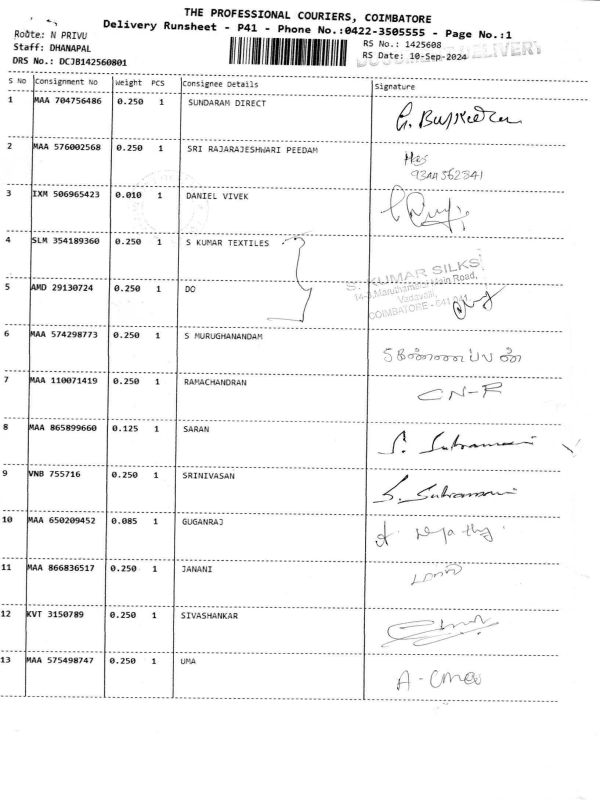 THE PROFESSIONAL COURIERS, COIMBATORE
Delivery Runsheet - P41 - Phone No.:0422-3505555 - Page No.:1
Route: N PRIVU
RS No.: 1425608
Staff: DHANAPAL
RS Date: 10-Sep-2024
DELIVERY
DRS No.: DCJB142560801
S No Consignment No Weight PCS Consignee Details Signature
1 MAA 704756486 0.250 1 SUNDARAM DIRECT
2 MAA 576002568 0.250 1 SRI RAJARAJESHWARI PEEDAM
9344562341
3 IXM 506965423 0.010 1 DANIEL VIVEK
4 SLM 354189360 0.250 1 S KUMAR TEXTILES
S. KUMAR SILKS
Main Road,
Vadavalli,
COIMBATORE - 641 041
5 AMD 29130724 0.250 1 DO
6 MAA 574298773 0.250 1 S MURUGHANANDAM
7 MAA 110071419 0.250 1 RAMACHANDRAN CN-R
8 MAA 865899660 0.125 1 SARAN S. Subramani
9 VNB 755716 0.250 1 SRINIVASAN S. Subramani
10 MAA 650209452 0.085 1 GUGANRAJ
11 MAA 866836517 0.250 1 JANANI
12 KVT 3150789 0.250 1 SIVASHANKAR
13 MAA 575498747 0.250 1 UMA A-